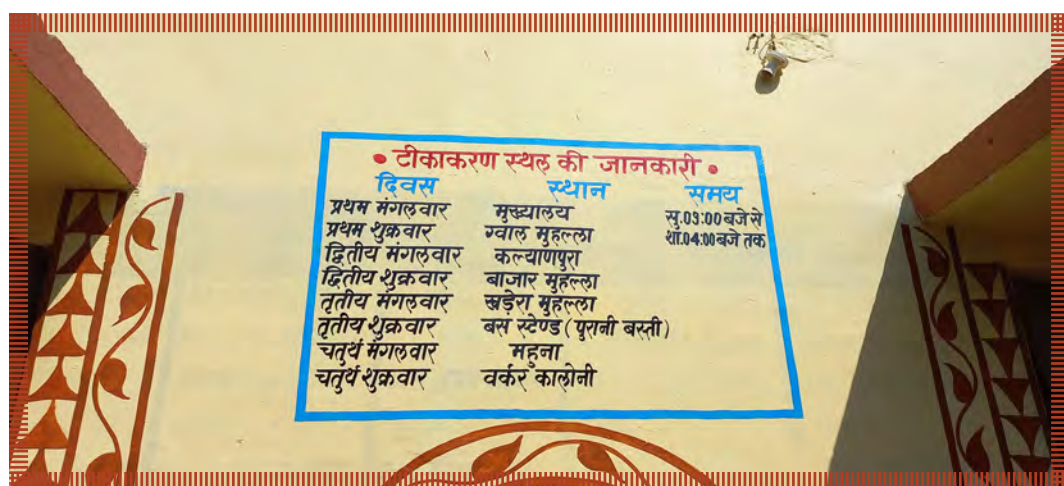 • टीकाकरण स्थल की जानकारी •
दिवस स्थान समय
प्रथम मंगलवार मुख्यालय सु.09:00 बजे से
प्रथम शुक्रवार ग्वाल मुहल्ला शा.04:00 बजे तक
द्वितीय मंगलवार कल्याणपुरा
द्वितीय शुक्रवार बाजार मुहल्ला
तृतीय मंगलवार खड़ेरा मुहल्ला
तृतीय शुक्रवार बस स्टेण्ड (पुरानी बस्ती)
चतुर्थ मंगलवार महुना
चतुर्थ शुक्रवार वर्कर कालोनी